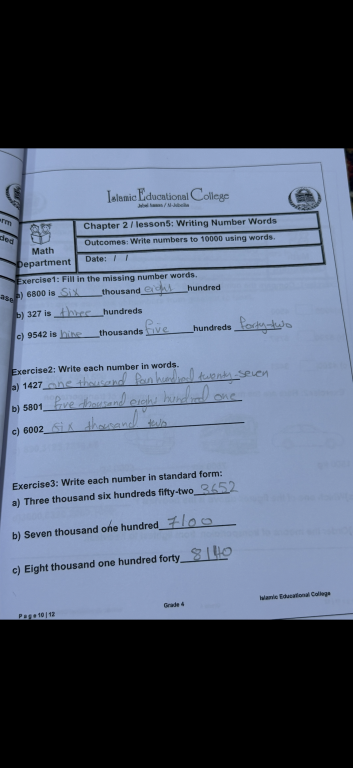 Islamic Educational College
Jabal Amman / Al-Jubeiha
rm
ded
ase
Math
Department
Chapter 2 / lesson5: Writing Number Words
Outcomes: Write numbers to 10000 using words.
Date: / /
Exercise1: Fill in the missing number words.
a) 6800 is six thousand eight hundred
b) 327 is three hundreds
c) 9542 is nine thousands five hundreds forty-two
Exercise2: Write each number in words.
a) 1427 one thousand four hundred twenty-seven
b) 5801 five thousand eight hundred one
c) 6002 six thousand two
Exercise3: Write each number in standard form:
a) Three thousand six hundreds fifty-two 3652
b) Seven thousand one hundred 7100
c) Eight thousand one hundred forty 8140
Islamic Educational College
Grade 4
Page 10 | 12